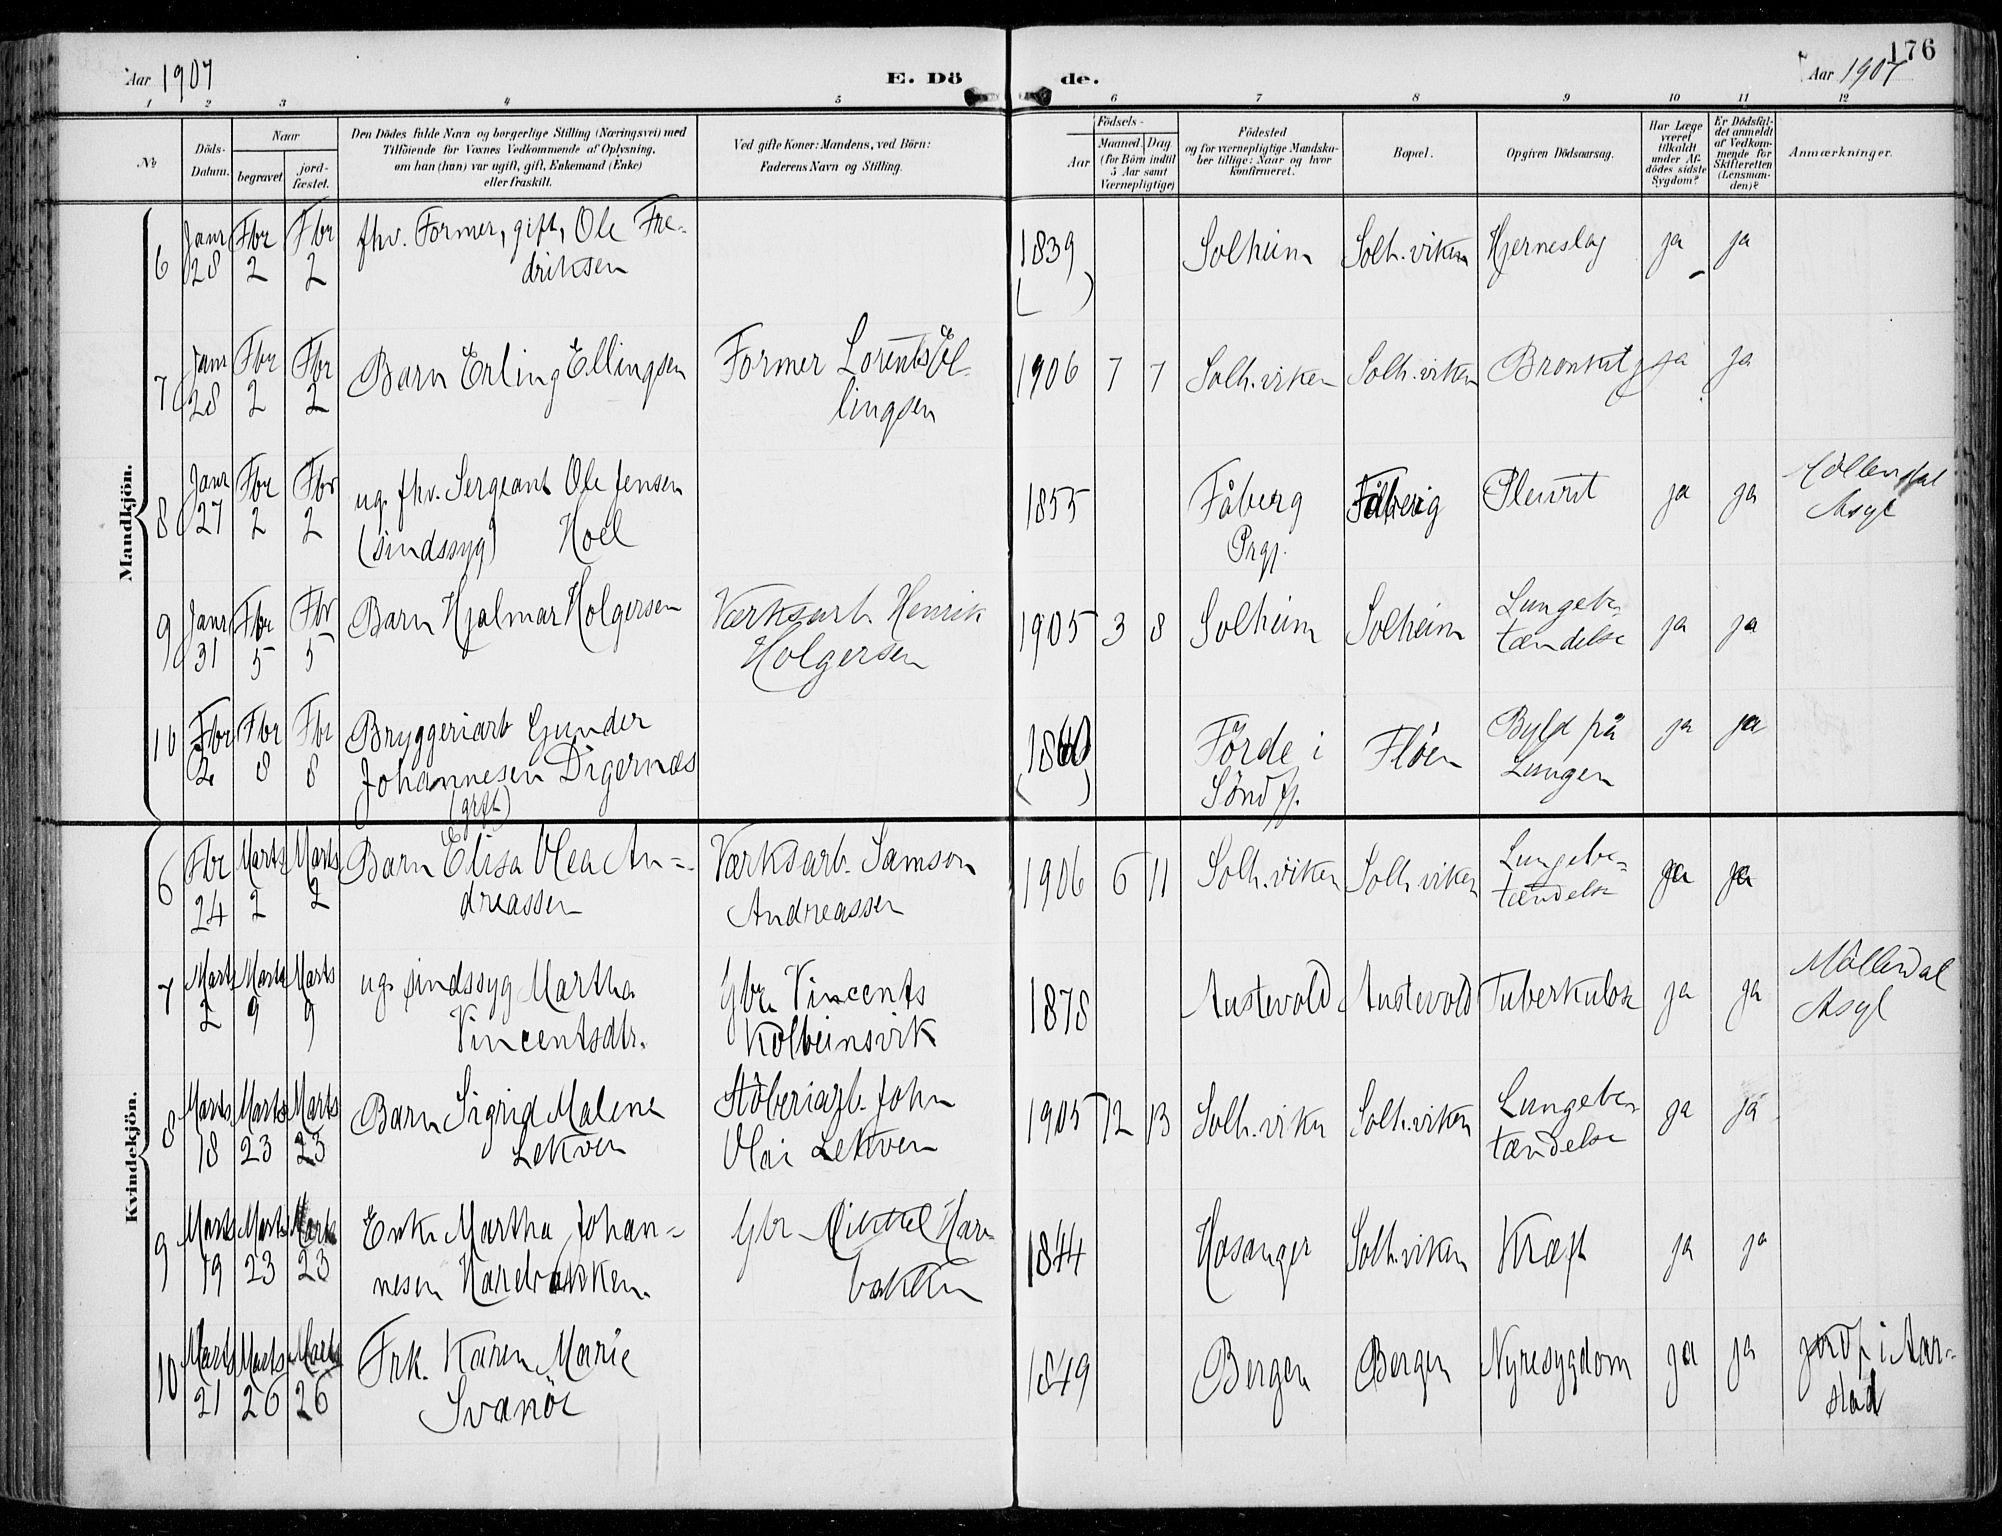 176
Aar 1907
E. Dö de.
Aar 1907
1 2 3 4 5 6 7 8 9 10 11 12
№
Döds-
Datum.
Naar
begravet.
jord-
fæstet.
Den Dödes fulde Navn og borgerlige Stilling (Næringsvei) med
Tilföiende for Voxnes Vedkommende af Oplysning,
om han (hun) var ugift, gift, Enkemand (Enke)
eller fraskilt.
Ved gifte Koner: Mandens, ved Börn:
Faderens Navn og Stilling.
Födsels-
Aar
Maaned. Dag.
(for Börn indtil
5 Aar samt
Værnepligtige)
Födested
og for værnepligtige Mandska-
ber tillige: Naar og hvor
konfirmeret.
Bopæl.
Opgiven Dödsaarsag.
Har Læge
været
tilkaldt
under Af-
dödes sidste
Sygdom?
Er Dödsfal-
det anmeldt
af Vedkom-
mende for
Skifteretten
(Lensman-
den)?
Anmærkninger.
Mandkjön.
6 Janr 28 Fbr 2 Fbr 2 fhv. Former, gift, Ole Fre-
driksen
1839 Solheim Solh.viken Hjerneslag ja ja
7 Janr 28 Fbr 2 Fbr 2 Barn Erling Ellingsen Former Lorents El-
lingsen
1906 7 7 Solh.viken Solh.viken Bronkit ja ja
8 Janr 27 Fbr 2 Fbr 2 ug. fhv. Sergeant Ole Jensen
(sindssyg) Hoel
1855 Fåberg
Prgj.
Fåberg Pleurit ja ja Möllendal
Asyl
9 Janr 31 Fbr 5 Fbr 5 Barn Hjalmar Holgersen Værksarb. Henrik
Holgersen
1905 3 8 Solheim Solheim Lungebe-
tændelse ja ja
10 Fbr 2 Fbr 8 Fbr 8 Bryggeriarb Gunder
Johannesen Digernæs
(gift)
Förde i
Söndfj.
Flöen Byld på
Lungen ja ja
Kvindekjön.
6 Fbr 24 Marts 2 Marts 2 Barn Elisa Olea An-
dreassen
Værksarb. Samson
Andreassen
1906 6 11 Solh.viken Solh.viken Lungebe-
tændelse ja ja
7 Marts 2 Marts 9 Marts 9 ug. sindssyg Martha
Vincentsdtr.
Gbr. Vincents
Kolbeinsvik
1878 Austevold Austevold Tuberkulose ja ja Möllendal
Asyl
8 Marts 18 Marts 23 Marts 23 Barn Sigrid Malene
Lekven
Stöberiarb. John
Olai Lekven
1905 12 13 Solh.viken Solh.viken Lungebe-
tændelse ja ja
9 Marts 19 Marts 23 Marts 23 Enke Martha Johan-
nesen Harebakken.
Gbr. Mikkel Hare-
bakken
1844 Hosanger Solh.viken Kræft ja ja
10 Marts 21 Marts 26 Marts 26 Frk. Karen Marie
Svanöe
1849 Bergen Bergen Nyresygdom ja ja jordf. i Aar-
stad